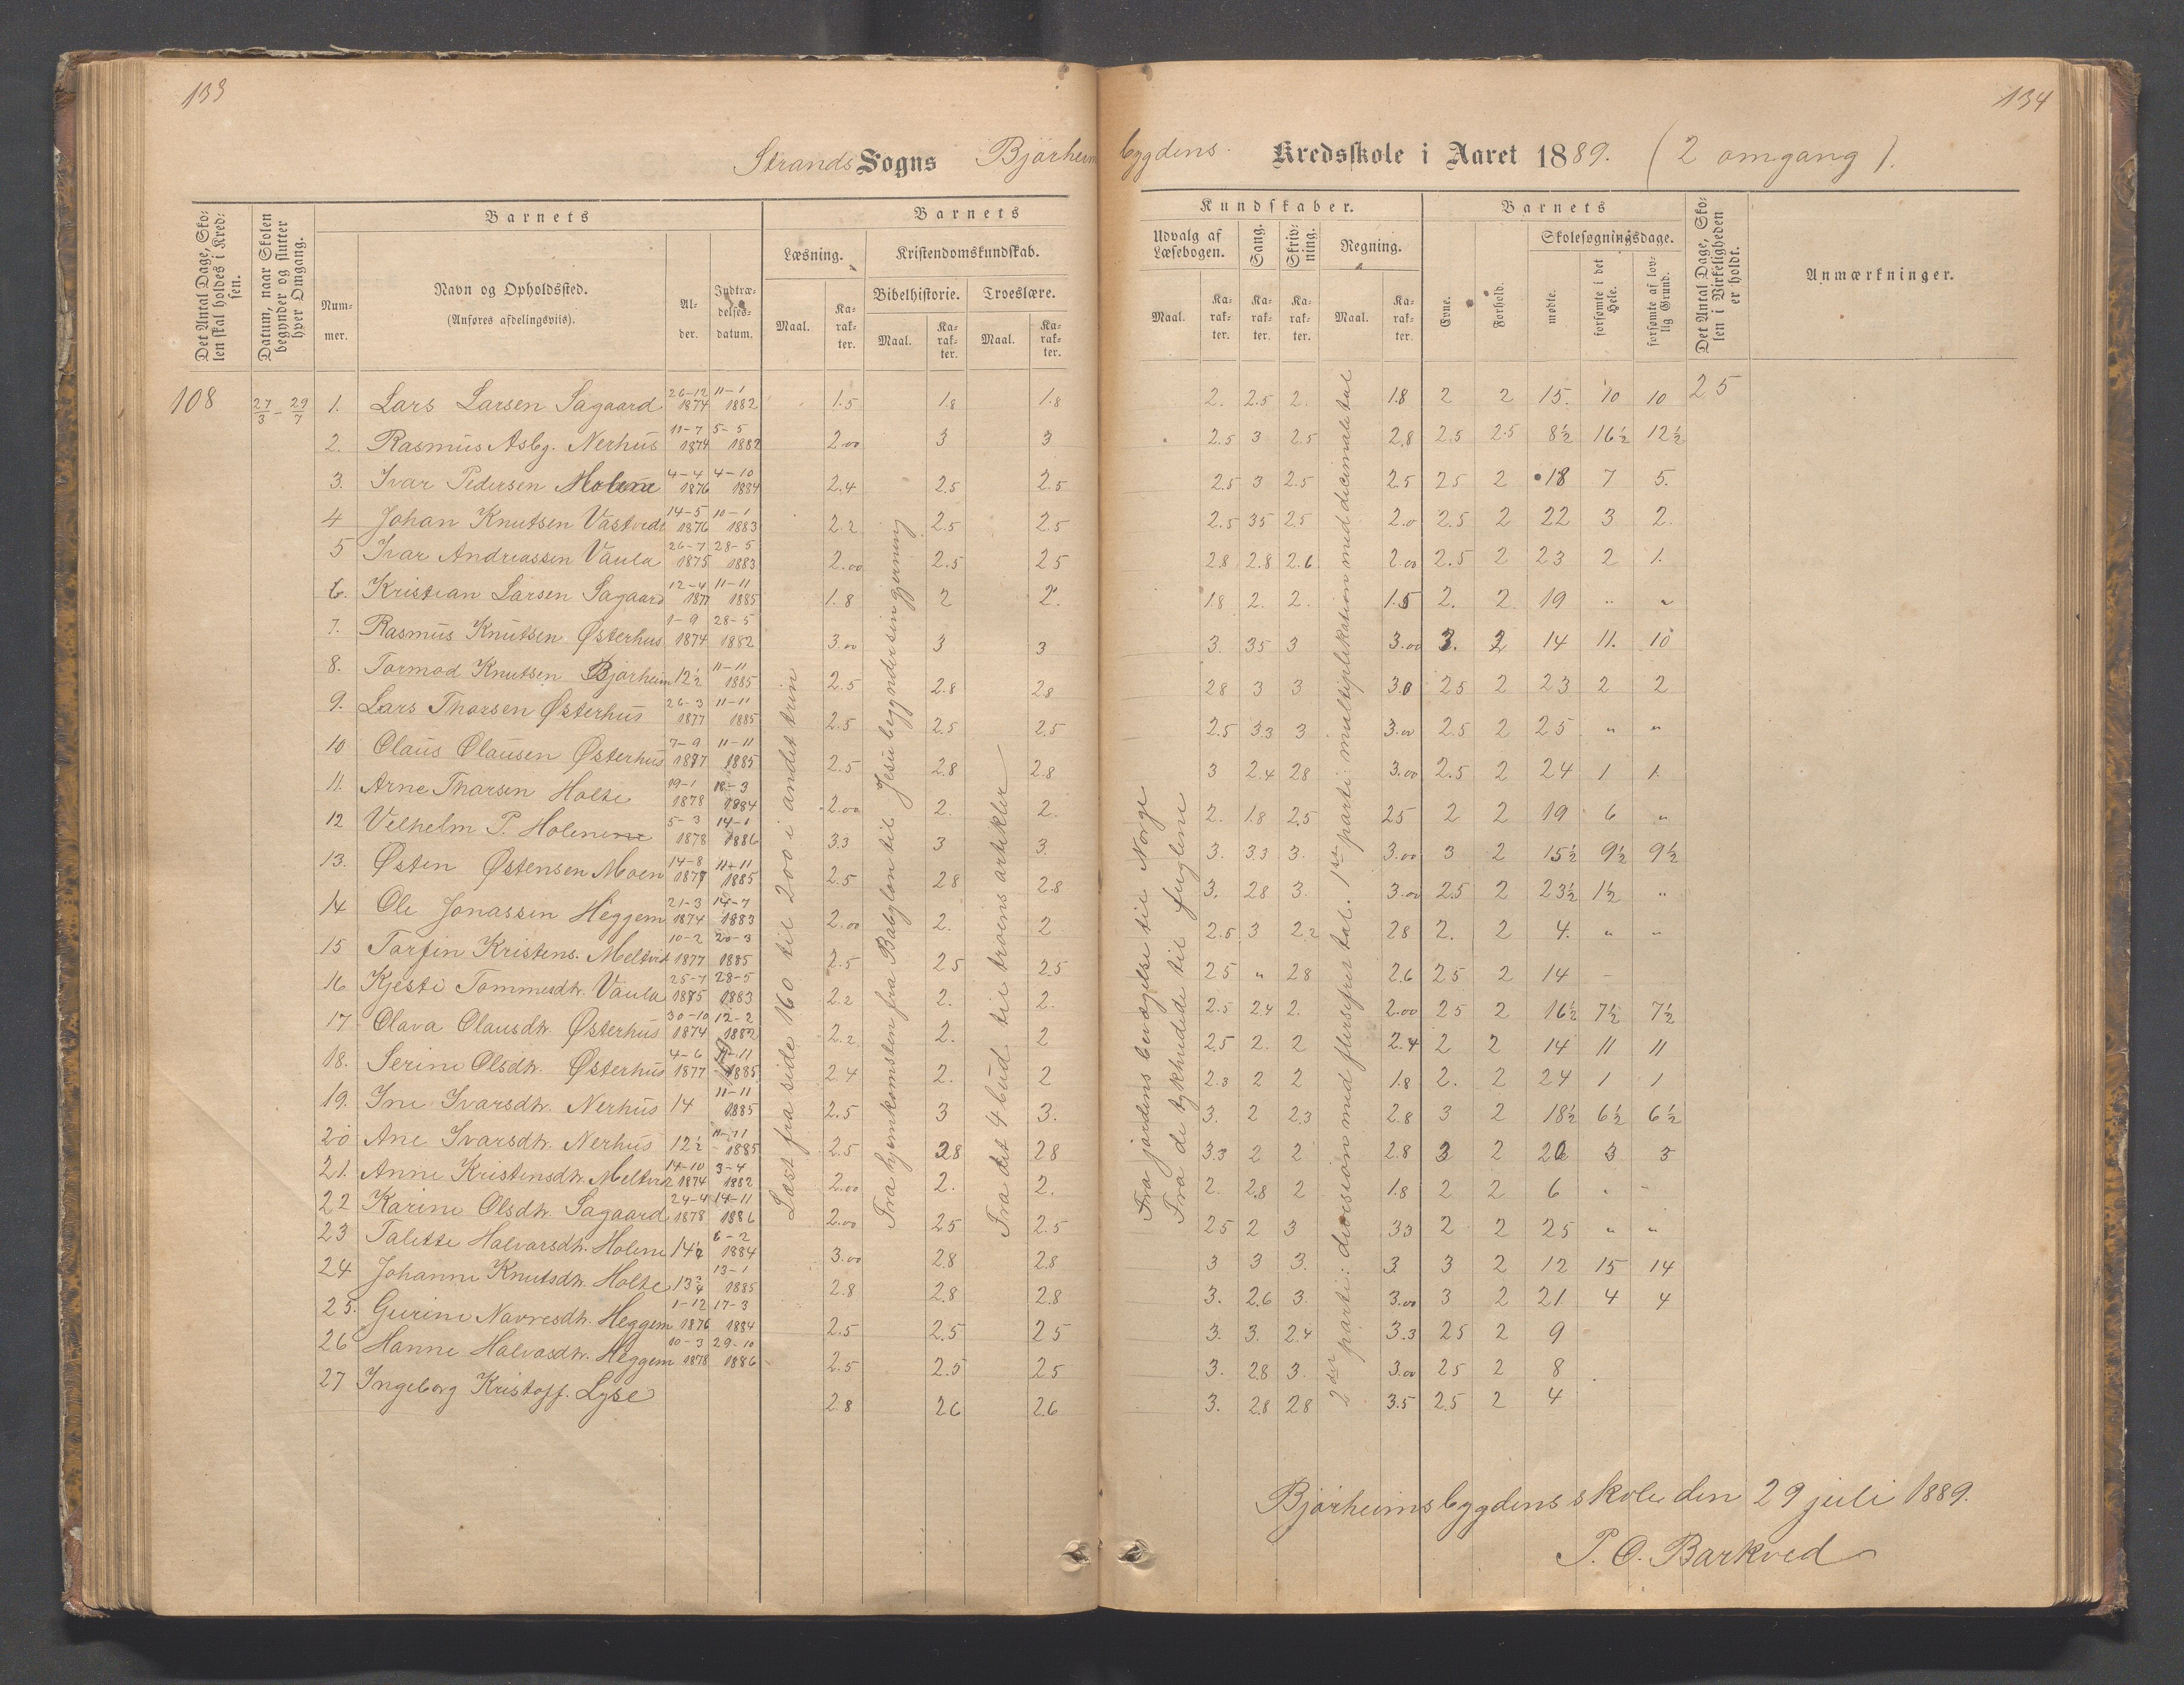 133
134
Strands Sogns Bjørheims bygdens Kredsskole i Aaret 1889. (2 omgang).
Det Antal Dage, Skolen skal holdes i Kredsen.
Datum, naar Skolen begynder og slutter hver Omgang.
Barnets
Nummer.
Navn og Opholdssted.
(Anføres afdelingsviis).
Alder.
Indtrædelsesdatum.
Barnets Kundskaber.
Læsning.
Maal.
Karakter.
Kristendomskundskab.
Bibelhistorie.
Maal.
Karakter.
Troeslære.
Maal.
Karakter.
Udvalg af Læsebogen.
Maal.
Karakter.
Sang.
Karakter.
Skrivning.
Karakter.
Regning.
Maal.
Karakter.
Barnets
Evne.
Forhold.
Skolesøgningsdage.
mødte.
forsømte i det Hele.
forsømte af lovlig Grund.
Det Antal Dage, Skolen i Virkeligheden er holdt.
Anmærkninger.
108 27/3 – 29/7 1. Lars Larsen Sagaard 26-12 1874 11-1 1882 1.5 1.8 1.8 2. 2.5 2. 1.8 2 2 15. 10 10 25
2. Rasmus Asbj. Nerhus 11-7 1874 5-5 1882 2.00 3 3 2.5 3 2.5 2.8 2.5 2.5 8½ 16½ 12½
3. Ivar Pedersen Holene 4-4 1876 4-10 1884 2.4 2.5 2.5 2.5 3 2.5 2.5 25 2 18 7 5.
4 Johan Knutsen Vastvedt 14-5 1876 10-1 1883 2.2 2.5 2.5 2.5 35 25 2.0 2.5 2 22 3 2.
5 Ivar Andreassen Vaula 26-7 1875 28-5 1883 2.00 2.5 25 28 2.8 2.6 2.00 2.5 2 23 2 1.
6. Kristian Larsen Sagaard 12-4 1877 11-11 1885 1.8 2 2. 18 2. 2. 1.5 2. 2. 19 " "
7. Rasmus Knutsen Østerhus 1-9 1874 28-5 1882 3.00 3 3 3. 35 3 3.00 3. 2 14 11. 10
8. Tormod Knutsen Bjørheim 12½ 11-11 1885 2.5 2.8 28 28 3 3 3.0 25 2 23 2 2
9. Lars Thorsen Østerhus 26-3 1877 11-11 1885 2.5 2.5 2.5 2.5 3.3 3 3.00 2.5 2 25 " "
10 Olaus Olausen Østerhus 7-9 1877 11-11 1885 2.5 2.8 2.8 3 2.4 28 3.00 2.5 2 24 1 1.
11. Arne Thorsen Holte 19-1 1878 18-3 1884 2.00 2. 2. 2. 1.8 2.5 25 2 2 19 6 "
12 Velhelm P. Holene 5-3 1878 14-1 1886 3.3 3 3. 3. 3.3 3. 3.00 3 2 15½ 9½ 9½
13. Østen Østensen Moen 14-8 1877 11-11 1885 2.5 28 2.8 3. 28 3. 3.00 25 2 23½ 1½ "
14 Ole Jonassen Heggem 21-3 1874 14-7 1883 2.00 2. 2 2.5 3 2.2 28 2. 2 4. " "
15 Torfin Kristens. Meltvedt 10-2 1877 20-3 1885 2.5 25 25 25 " 28 2.6 25 2 14 -
16 Kjesti Tommesdtr. Vaula 25-7 1875 28-5 1883 2.2 2. 2. 2.5 2.4 2. 2.00 25 2 16½ 7½ 7½
17 Olava Olausdtr. Østerhus 30-10 1874 12-2 1882 2.2 2. 2 25 2. 2 2.4 2 2 14 11 11
18. Serine Olsdtr. Østerhus 4-6 1877 11 1885 2.4 2. 2 2.3 2 2 1.8 2. 2 24 1 1
19. Ine Ivarsdtr. Nerhus 14 11-11 1885 2.5 3 3. 3. 2 2.3 2.8 3 2 18½ 6½ 6½
20 Ane Ivarsdtr. Nerhus 12½ 11-11 1885 2.5 28 28 3.3 2 2 2.8 3 2 20 3 3
21. Anne Kristensdtr. Meltvedt 14-10 1874 3-4 1882 2.00 2. 2. 2. 2.8 2 1.8 2 2 6 " -
22 Karine Olsdtr. Sagaard 24-4 1878 14-11 1886 2.00 25 2.5 25 2 3 33 2 2 25 " "
23 Talette Halvarsdtr. Holene 14½ 6-2 1884 3.00 28 28 3 3 3. 3. 3 2 12 15 14
24 Johanne Knutsdtr. Holte 13¾ 13-1 1885 2.8 2.8 2.8 3. 2.6 3. 3.00 3 2 21 4 4
25. Gurine Navresdtr. Heggem 1-12 1876 17-3 1884 2.5 2.5 25 3. 3. 2.4 3.3 25 2 9
26 Hanne Halvasdtr. Heggem 10-3 1878 29-10 1886 2.5 2.5 25 3. 28 3. 3.00 25 2 8
27 Ingeborg Kristoff. Lyse 2.8 26 2.6 3. 2.8 28 3.5 2.5 2 4
Læst fra side 160 til 200 i andet trin
Fra hjemkomsten fra Babylon til Jesu begyndersin gjerning
Fra det 4 bud til troens artikler
Fra jordens bevægelse til Norge
Fra de tykhudede til fuglene
2den parti: division med flersifret tal. 1ste parti: multiplikation med decimaltal
Bjørheimsbygdens skole den 29 juli 1889.
P. O. Barkved